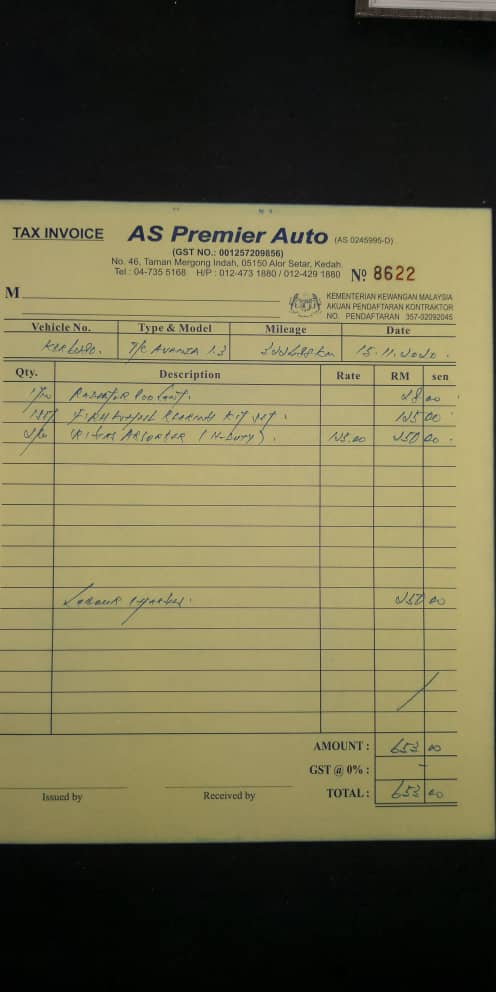 TAX INVOICE AS Premier Auto (AS 0245995-D)
(GST NO.: 001257209856)
No. 46, Taman Mergong Indah, 05150 Alor Setar, Kedah.
Tel : 04-735 5168 H/P : 012-473 1880 / 012-429 1880 No 8622
M
KEMENTERIAN KEWANGAN MALAYSIA
AKUAN PENDAFTARAN KONTRAKTOR
NO. PENDAFTARAN 357-02092045
Vehicle No. Type & Model Mileage Date
T/C AVANZA 1.3 15.11.2020.
Qty. Description Rate RM sen
RADIATOR COOLANT. 28 00
BEARING KIT SET. 125 00
ABSORBER (H-DUTY). 125.00 250 00
LABOUR CHARGES. 250 00
AMOUNT : 653 00
GST @ 0% : -
Issued by Received by TOTAL : 653 00